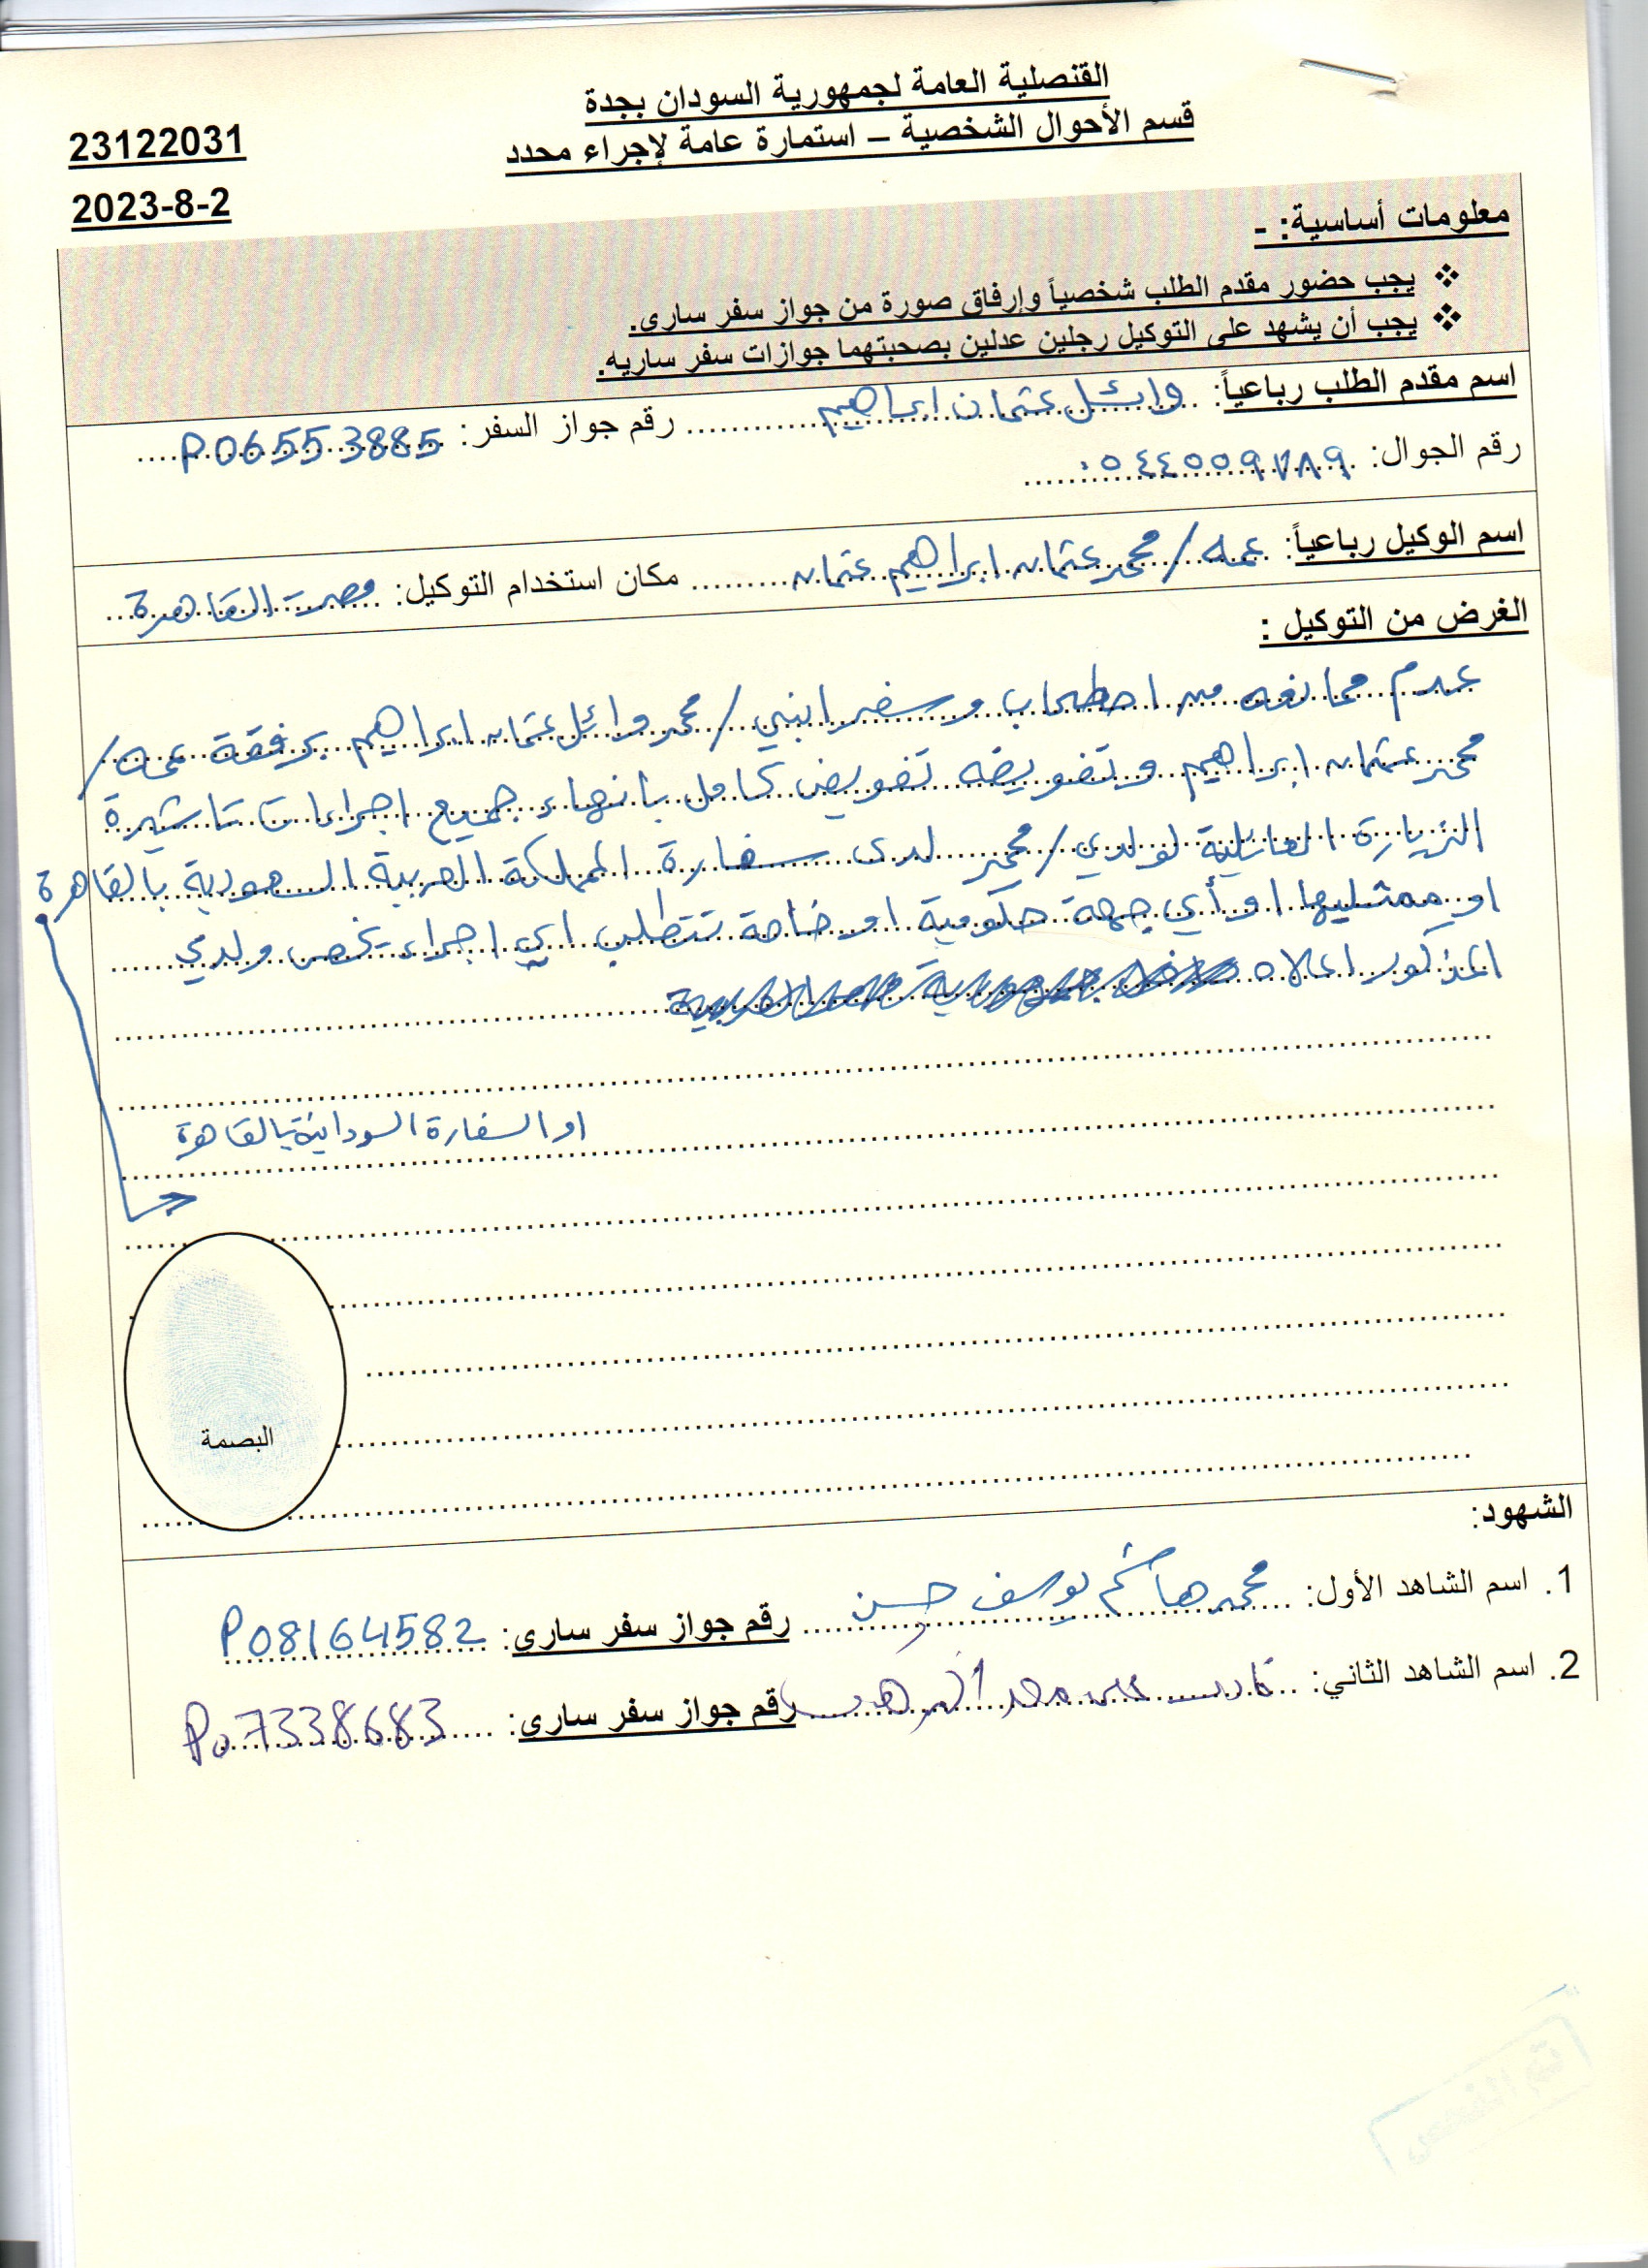 القنصلية العامة لجمهورية السودان بجدة
قسم الأحوال الشخصية – استمارة عامة لإجراء محدد
23122031
2023-8-2
معلومات أساسية: -
❖ يجب حضور مقدم الطلب شخصياً وإرفاق صورة من جواز سفر ساري.
❖ يجب أن يشهد على التوكيل رجلين عدلين بصحبتهما جوازات سفر ساريه.
اسم مقدم الطلب رباعياً: وائل عثمان ابراهيم رقم جواز السفر: P06553885
رقم الجوال: ٠٥٤٤٥٥٩٧٨٩
اسم الوكيل رباعياً: عمه / محمد عثمان ابراهيم عثمان مكان استخدام التوكيل: مصر - القاهرة
الغرض من التوكيل :
عدم ممانعه من اصطحاب وسفر ابني / محمد وائل عثمان ابراهيم برفقة عمه /
محمد عثمان ابراهيم وتفويضه تفويض كامل بانهاء جميع اجراءات تاشيرة
الزيارة العايلية لولدي / محمد لدى سفارة المملكة العربية السعودية بالقاهرة
او ممثليها او أي جهة حكومية او خاصة تتطلب اي اجراء يخص ولدي
المذكور اعلاه
او السفارة السودانية بالقاهرة
البصمة
الشهود:
1. اسم الشاهد الأول: محمد هاشم يوسف حسن رقم جواز سفر ساري: P08164582
2. اسم الشاهد الثاني: رقم جواز سفر ساري: P07338683
تم الفحص